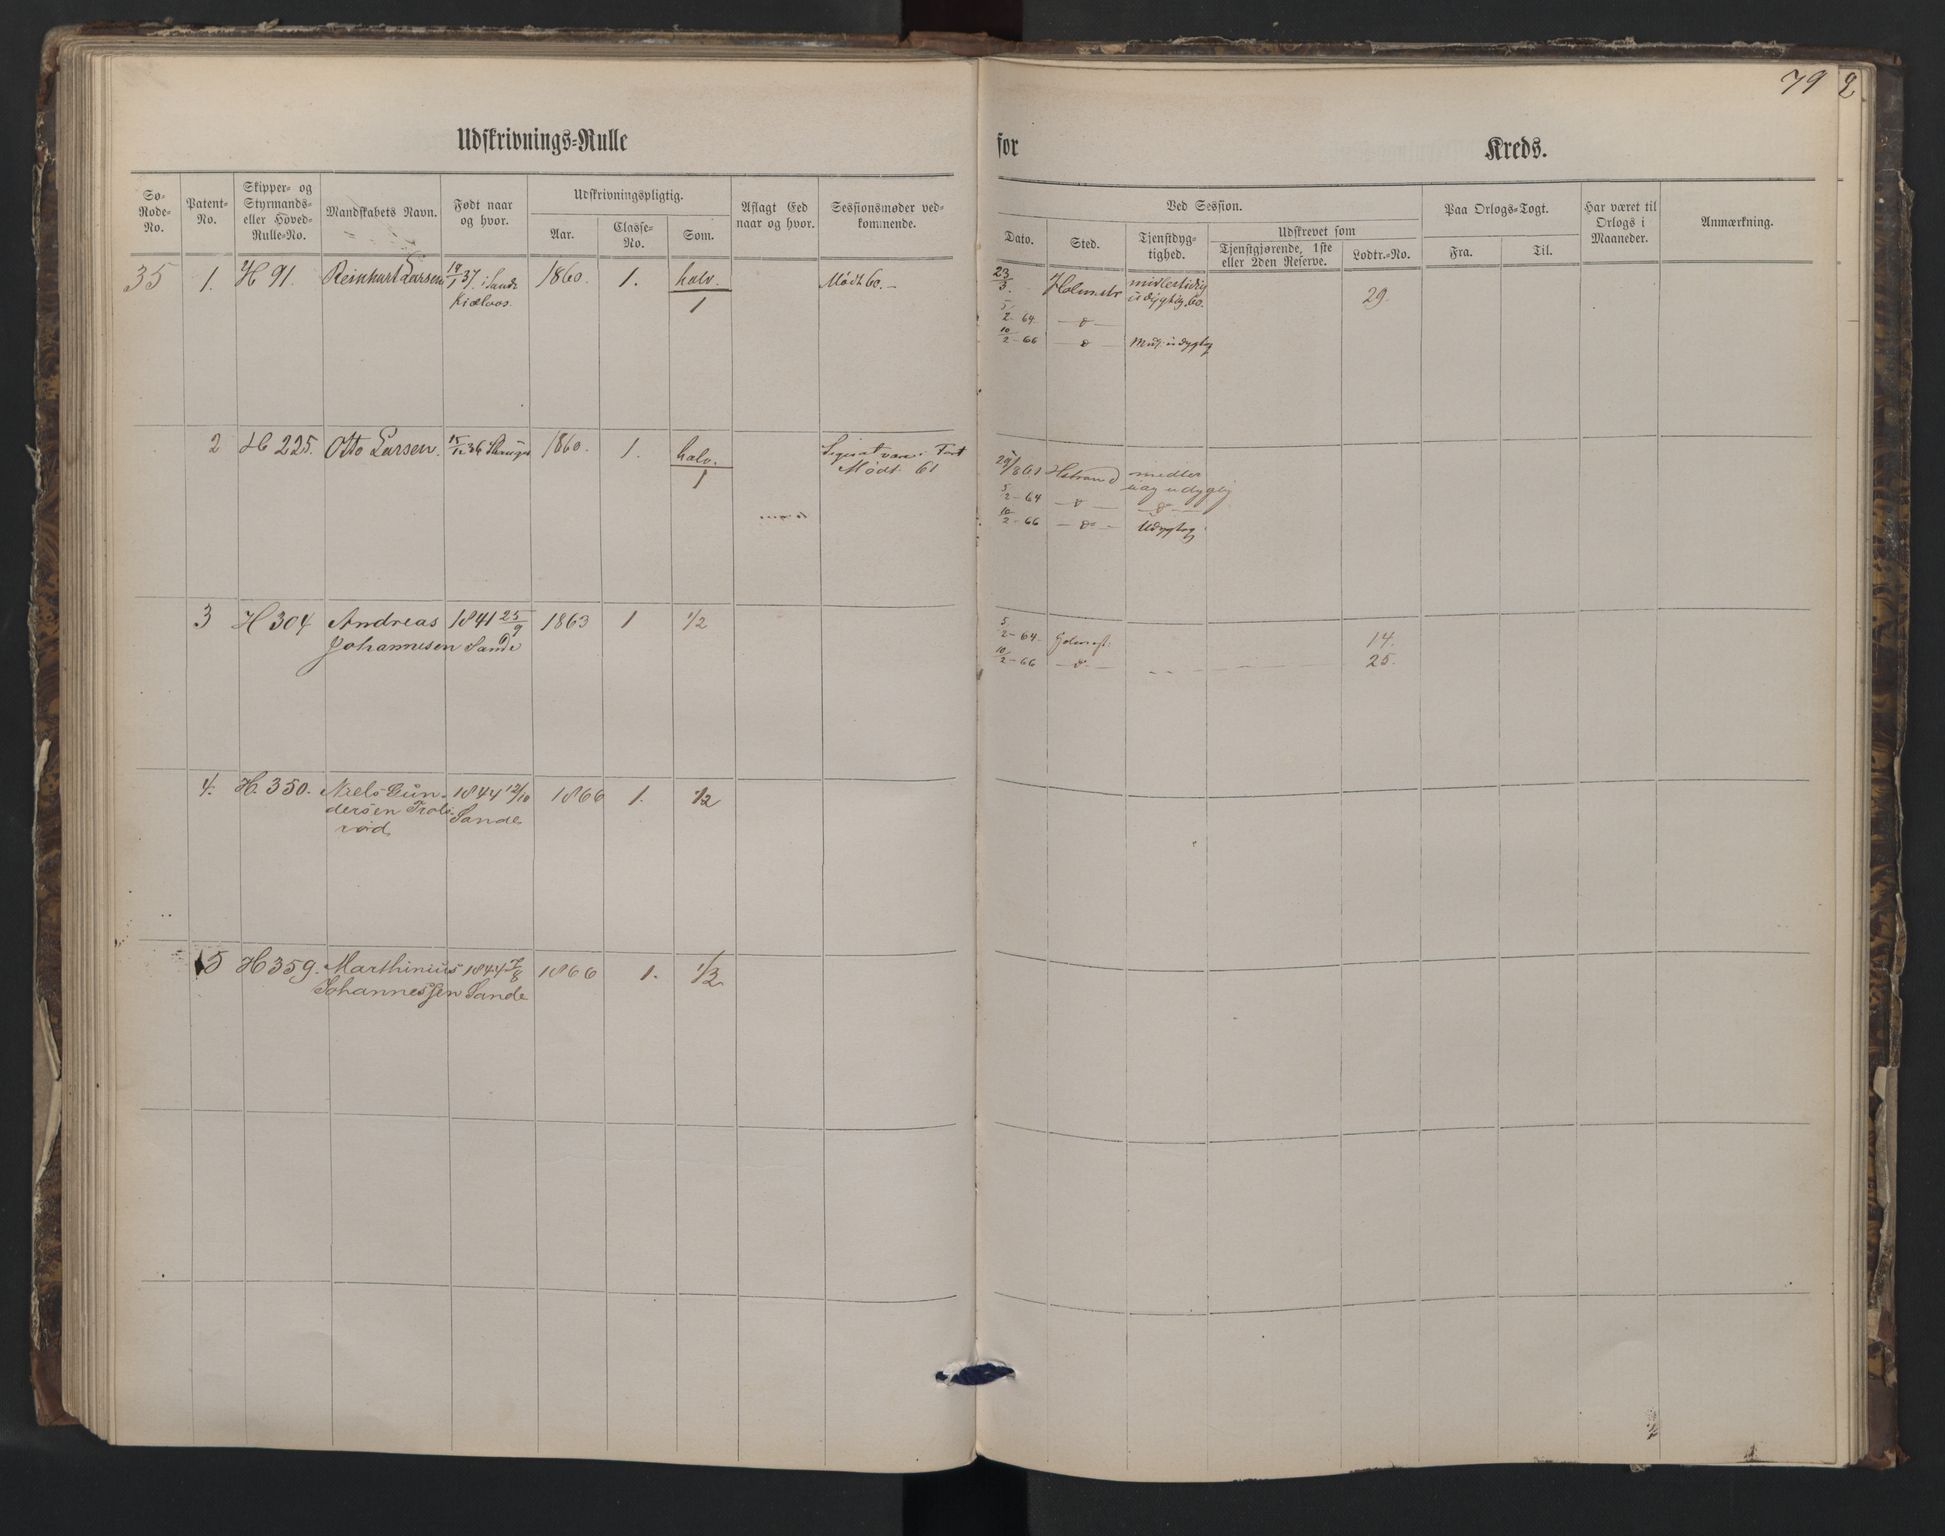 79 2
Udskrivnings-Rulle
for
Kreds.
Sø-Rode-No.
Patent-No.
Skipper- og Styrmands- eller Hoved-Rulle-No.
Mandskabets Navn.
Født naar og hvor.
Udskrivningspligtig.
Aar.
Classe-No.
Som.
Aflagt Eed naar og hvor.
Sessionsmøder vedkommende.
Ved Session.
Dato.
Sted.
Tjenstdygtighed.
Udskrevet som
Tjenstgjørende, 1ste eller 2den Reserve.
Lodtr.-No.
Paa Orlogs-Togt.
Fra.
Til.
Har været til Orlogs i Maaneder.
Anmærkning.
35 1. H 91. Reinhart Larsen 19/1 37. i Sande 1860. 1. halv. Mødt 60. 23/5 Holmstr midlertidig
1 udygtig 60. 29.
5/2-64 — d —
10/2-66 — d — Mid. udygtig
2 H 225. Otto Larsen. 15/12 36 1860. 1. halv.
1 Mødt 61
61 Hstrand midler
5/2-64 — d — udygtig
— d —
10/2-66 — d — Udygtig
3 H 304 Andreas 1841 25/9 1863 1 1/2 5/2-64 14.
Johannesen Sande 10/2-66 — d — 25.
4. H. 350. Niels Gun- 1844 12/10 1866 1. 1/2
dersen Trols- Sande
rød
5 H 359. Marthinius 1844 7/8 1866 1. 1/2
Johannessen Sande